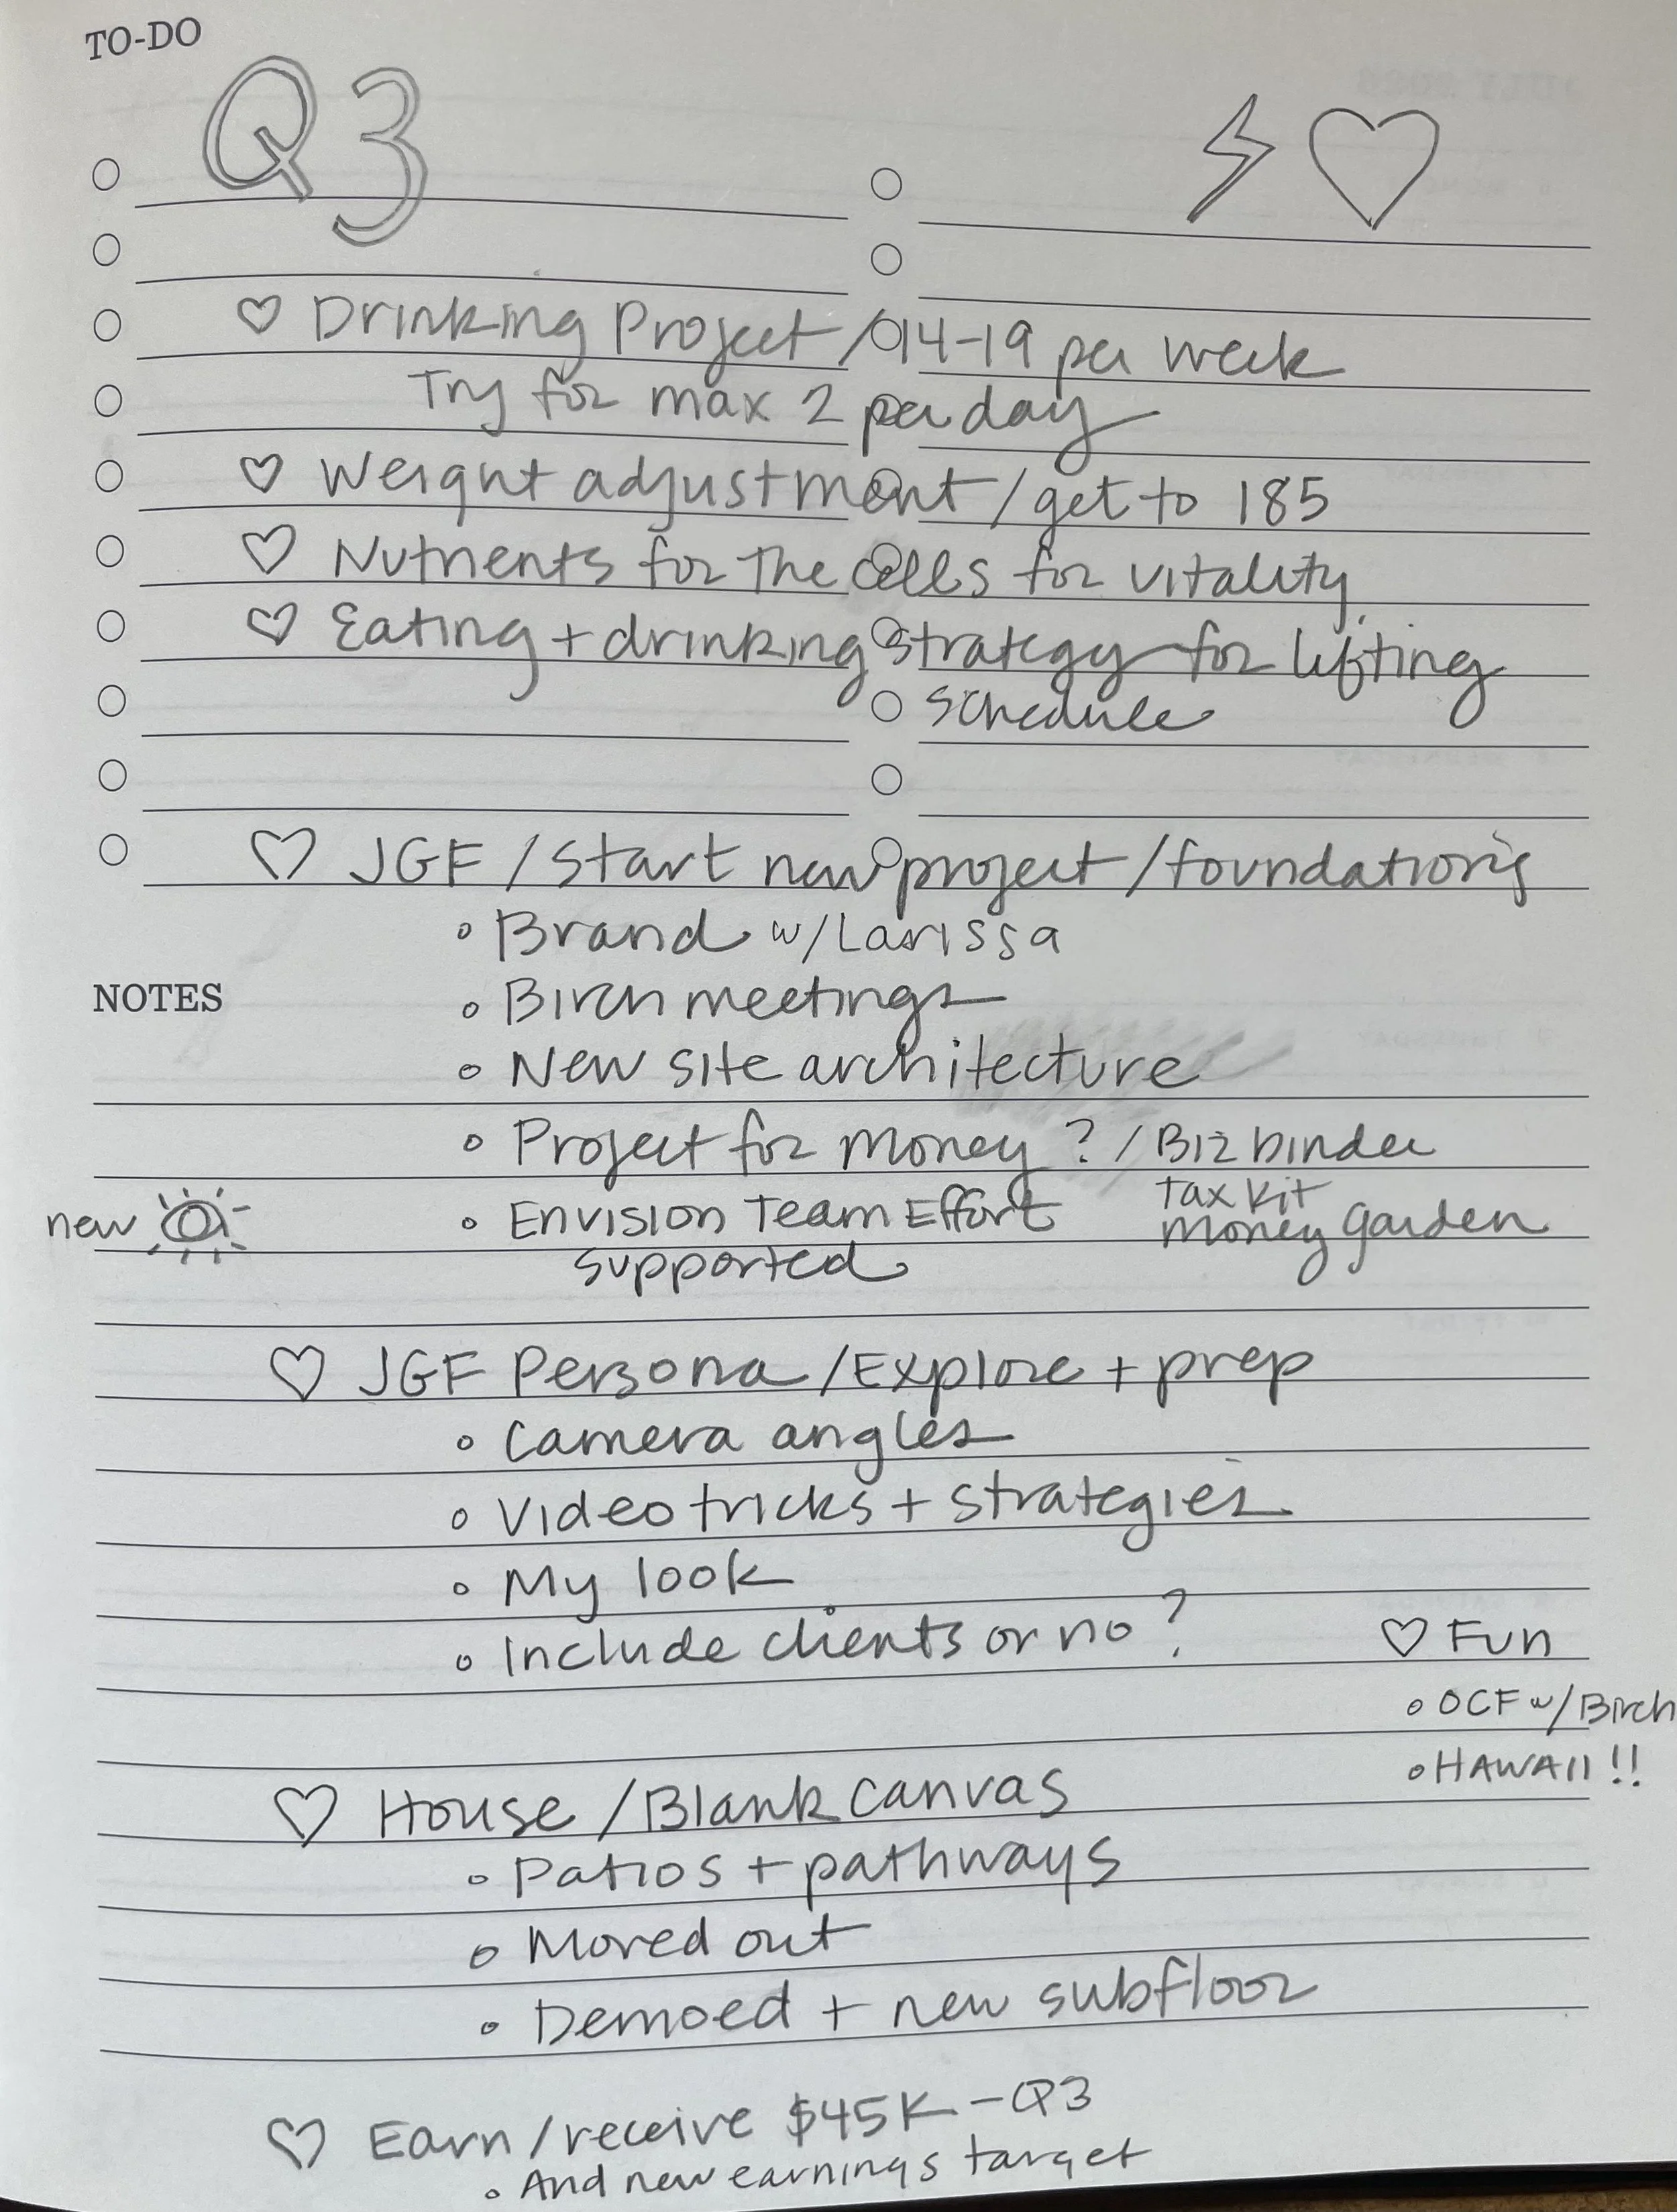 TO-DO
Q3
♡ Drinking Project / 14-19 per week
Try for max 2 per day
♡ Weight adjustment / get to 185
♡ Nutrients for the cells for vitality
♡ Eating + drinking strategy for lifting
schedule
♡ JGF / Start new project / foundations
• Brand w/ Larissa
NOTES
• Birch meetings
• New site architecture
• Project for money ? / Biz binder
Tax kit
Money Garden
new
• Envision Team Effort
supported
♡ JGF Persona / Explore + prep
• Camera angles
• Video tricks + strategies
• My look
• Include clients or no ?
♡ Fun
• OCF w/ Birch
• HAWAII !!
♡ House / Blank canvas
• Patios + pathways
• Moved out
• Demoed + new subfloor
♡ Earn / receive $45K - Q3
• And new earnings target